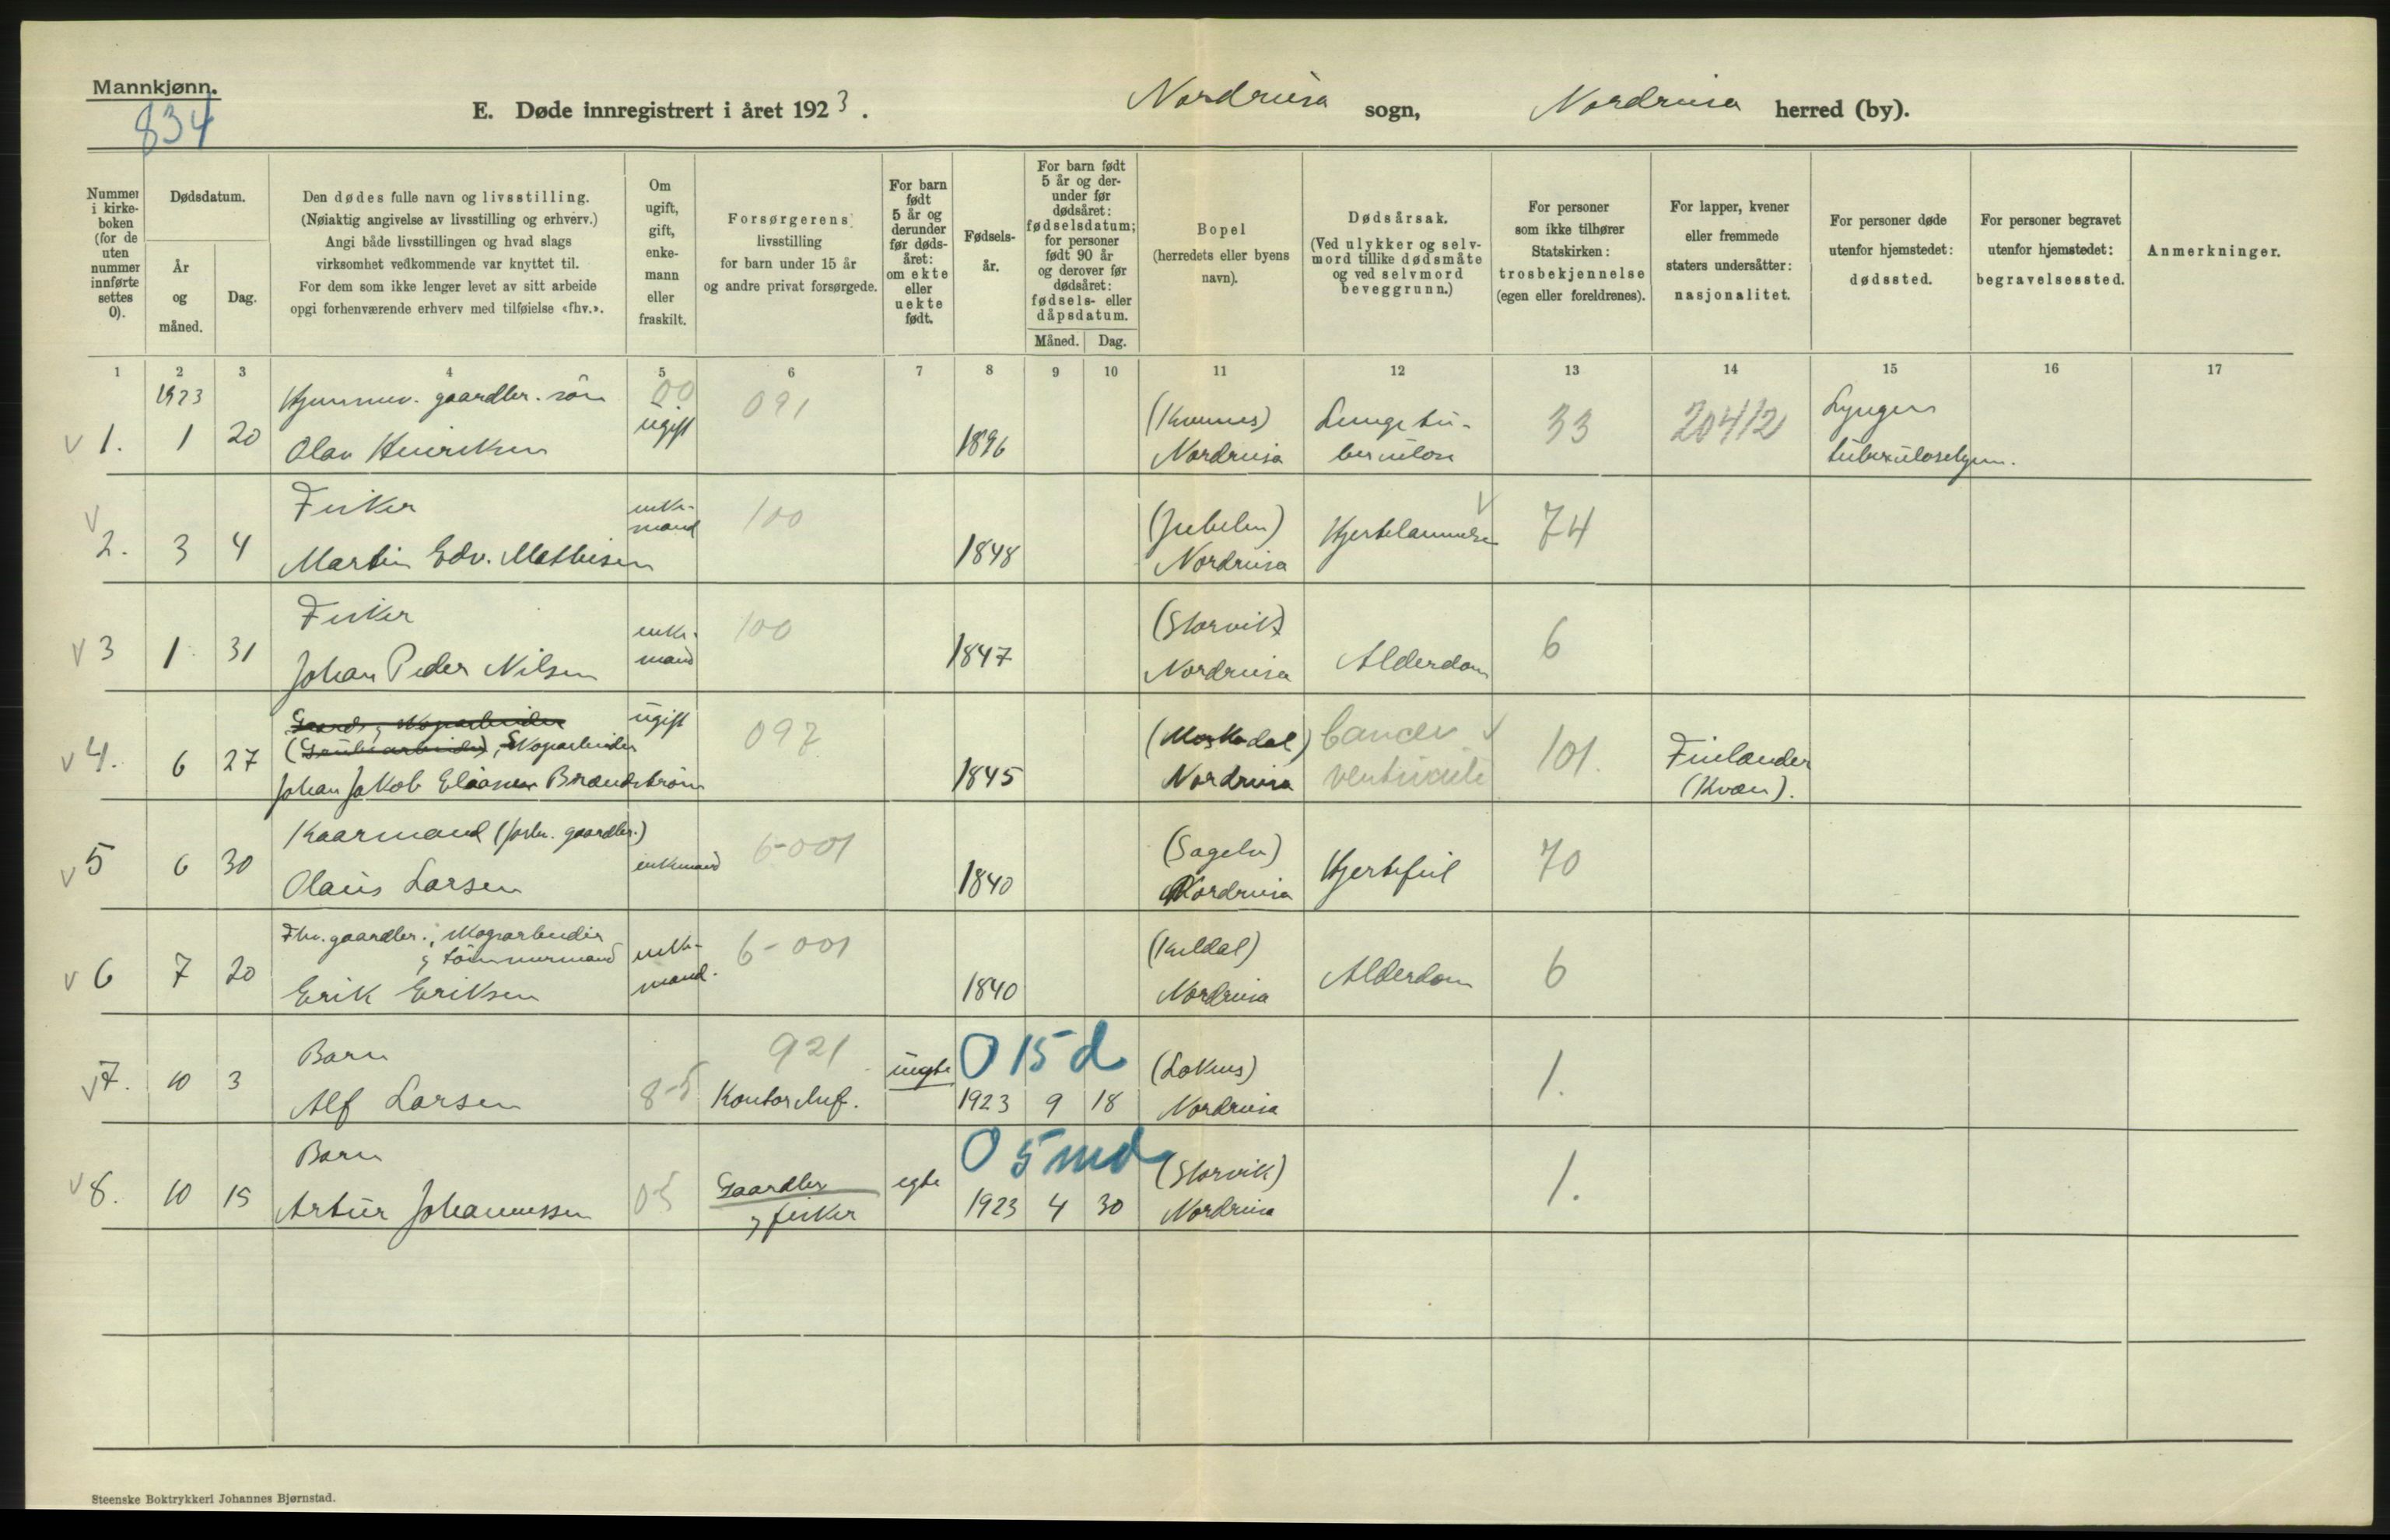 Mannkjønn.
834
E. Døde innregistrert i året 1923.
Nordreisa sogn, Nordreisa herred (by).
Nummer i kirke-boken (for de uten nummer innførte settes 0).
Dødsdatum.
År og måned.
Dag.
Den dødes fulle navn og livsstilling.
(Nøiaktig angivelse av livsstilling og erhverv.)
Angi både livsstillingen og hvad slags
virksomhet vedkommende var knyttet til.
For dem som ikke lenger levet av sitt arbeide
opgi forhenværende erhverv med tilføielse «fhv.».
Om ugift, gift, enke-mann eller fraskilt.
Forsørgerens livsstilling
for barn under 15 år
og andre privat forsørgede.
For barn født 5 år og derunder før døds-året: om ekte eller uekte født.
Fødsels-år.
For barn født 5 år og der-under før dødsåret: fødselsdatum; for personer født 90 år og derover før dødsåret: fødsels- eller dåpsdatum.
Måned. Dag.
Bopel
(herredets eller byens navn).
Dødsårsak.
(Ved ulykker og selv-mord tillike dødsmåte og ved selvmord beveggrunn.)
For personer som ikke tilhører Statskirken: trosbekjennelse (egen eller foreldrenes).
For lapper, kvener eller fremmede staters undersåtter: nasjonalitet.
For personer døde utenfor hjemstedet: dødssted.
For personer begravet utenfor hjemstedet: begravelsessted.
Anmerkninger.
1 2 3 4 5 6 7 8 9 10 11 12 13 14 15 16 17
1923 Hjemmev. gaardbr. søn 00 091 (Kvænnes) Lungetu- 33 20412 Lyngen
V 1. 1 20 Olav Henriksen ugift 1896 Nordreisa berculose tuberculosehjem.
V Fisker enke- 100 (Jubelen) V
2. 3 4 Martin Edv. Mathisen mand 1848 Nordreisa Hjertelammelse 74
Fisker enke- 100 (Storvik)
V 3 1 31 Johan Peder Nilsen mand 1847 Nordreisa Alderdom 6
Gaards- og Skogarbeider ugift
(Grubearbeider), Skogarbeider 097 (Moskodal) Cancer V 101. Finlænder
V 4. 6 27 Johan Jakob Brændström 1845 Nordreisa ventriculi (Kvæn).
Kaarmand (forhv. gaardbr.) 6-001 (Sagelv)
V 5 6 30 Olaus Larsen enkemand 1840 Nordreisa Hjertefeil 70
Fhv. gaardbr., skogarbeider
og tømmermand enke- 6-001 (Kildal)
V 6 7 20 Erik Eriksen mand. 1840 Nordreisa Alderdom 6
Barn 921 uegte 0 15 d (Loknes)
V 7. 10 3 Alf Larsen 8-5 Kontorchef. 1923 9 18 Nordreisa 1.
Barn egte 0 5 md (Storvik)
V 8. 10 15 Artur Johannessen 05 Gaardbr. og fisker 1923 4 30 Nordreisa 1.
Steenske Boktrykkeri Johannes Bjørnstad.